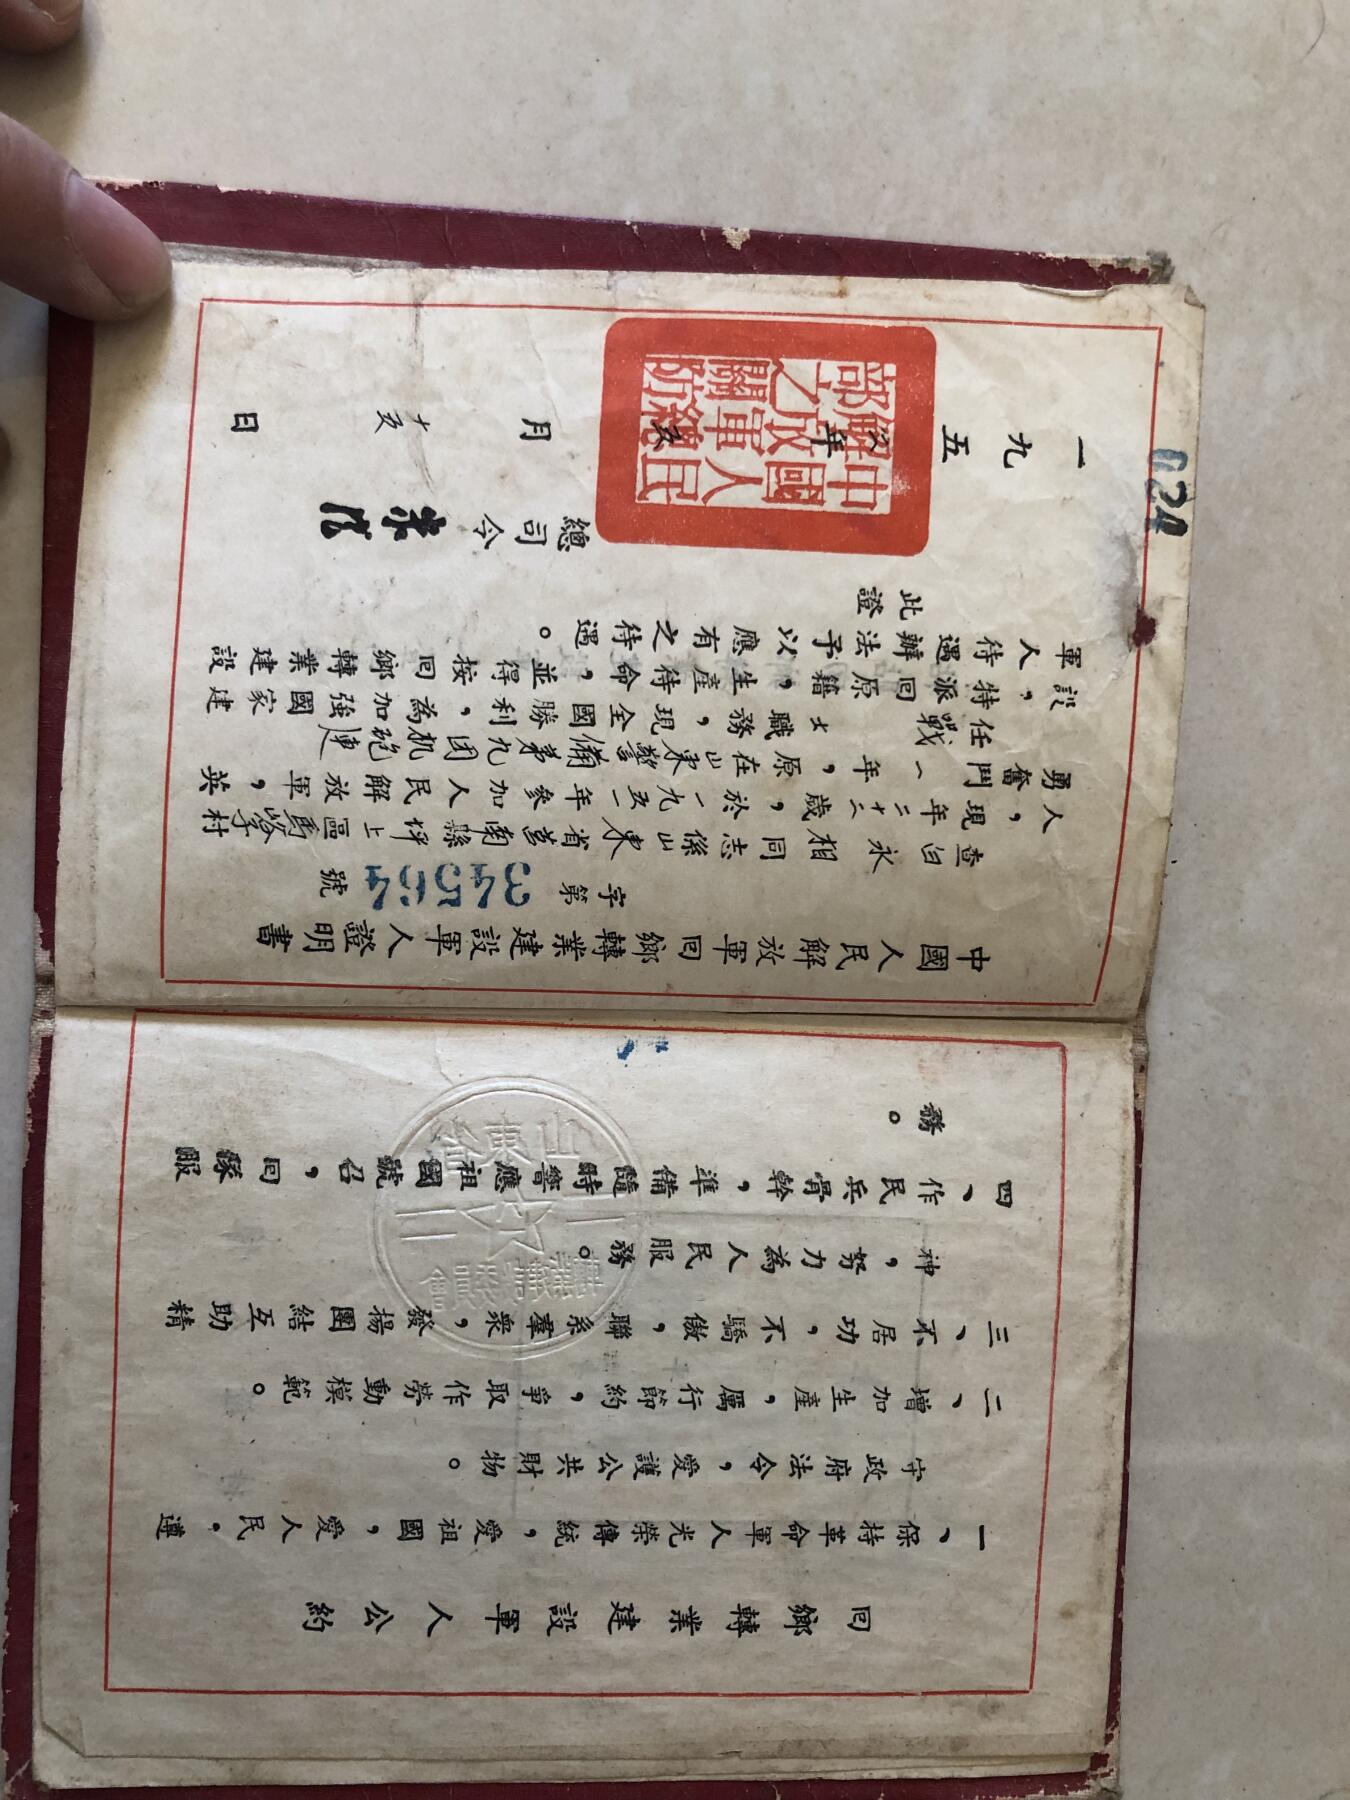 回鄉轉業建設軍人公約
一、保持革命軍人光榮傳統，愛祖國，愛人民，遵
守政府法令，愛護公共財物。
二、增加生產，厲行節約，爭取作勞動模範。
三、不居功，不驕傲，聯系羣衆，發揚團結互助精
神，努力為人民服務。
四、作民兵骨幹，準備隨時響應祖國號召，回隊服
務。
中國人民解放軍回鄉轉業建設軍人證明書
字第34564號
查白永相同志係山東省莒南縣坪上區村
人，現年二十三歲，於一九五一年參加人民解放軍，英
勇奮鬥一年，原在山東警備第九团机砲連
任戰士職務，現全國勝利，為加強國家建
設，特派回原籍，生產待命，並得按回鄉轉業建設
軍人待遇辦法予以應有之待遇。
此證
總司令 朱德
一九五二年五月十五日
中國人民解放軍總部之關防
624